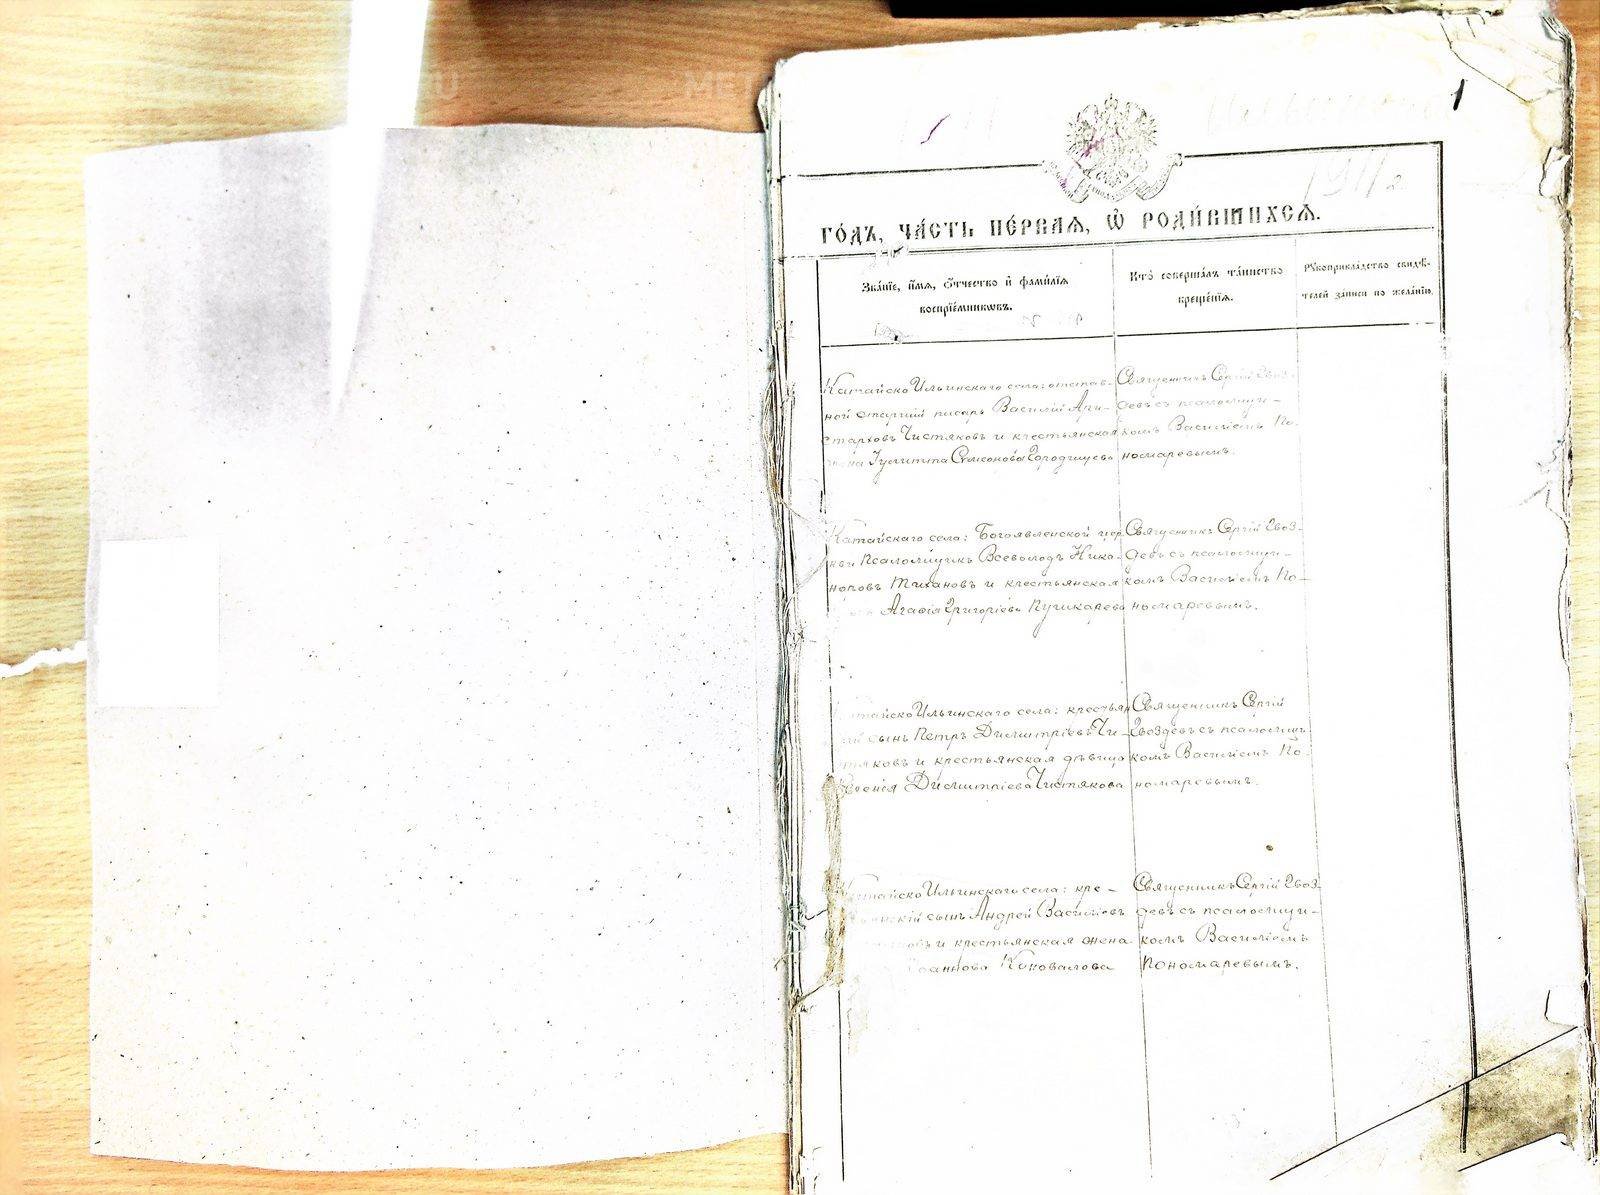 1
1911 г.
ГО́ДЪ, ЧА́СТЬ ПЕ́РВАЯ, Ѡ҆ РОДИ́ВШИХСЯ.
Зва́нїе, и҆́мя, ѻ҆́тчество и҆ фами́лїя
воспрїе́мникѡвъ.
Кто̀ соверша́лъ та́инство
креще́нїя.
Рꙋкоприкла́дство свидѣ́-
телей за́писи по жела́нїю.
Катайско Ильинскаго села: отстав-
ной старшій писарь Василій Ари-
старховъ Чистяковъ и крестьянская
Іулитта Симеонова Городищева
Священникъ Сергій Гвоз-
девъ съ псаломщи-
комъ Василіемъ По-
номаревымъ.
Катайскаго села: Богоявленской цер
кви Псаломщикъ Всеволодъ Ника-
норовъ Тихановъ и крестьянская
Агафія Григоріева Пушкарева
Священникъ Сергій Гвоз-
девъ съ псаломщи-
комъ Василіемъ По-
номаревымъ.
Катайско Ильинскаго села: крестьян
сынъ Петръ Димитріевъ Чи-
стяковъ и крестьянская дѣвица
Димитріева Чистякова
Священникъ Сергій
Гвоздевъ съ псаломщи
комъ Василіемъ По-
номаревымъ.
Катайско Ильинскаго села: кре-
стьянскій сынъ Андрей Васильевъ
и крестьянская жена
Іоаннова Коновалова
Священникъ Сергій Гвоз-
девъ съ псаломщи-
комъ Василіемъ
Пономаревымъ.